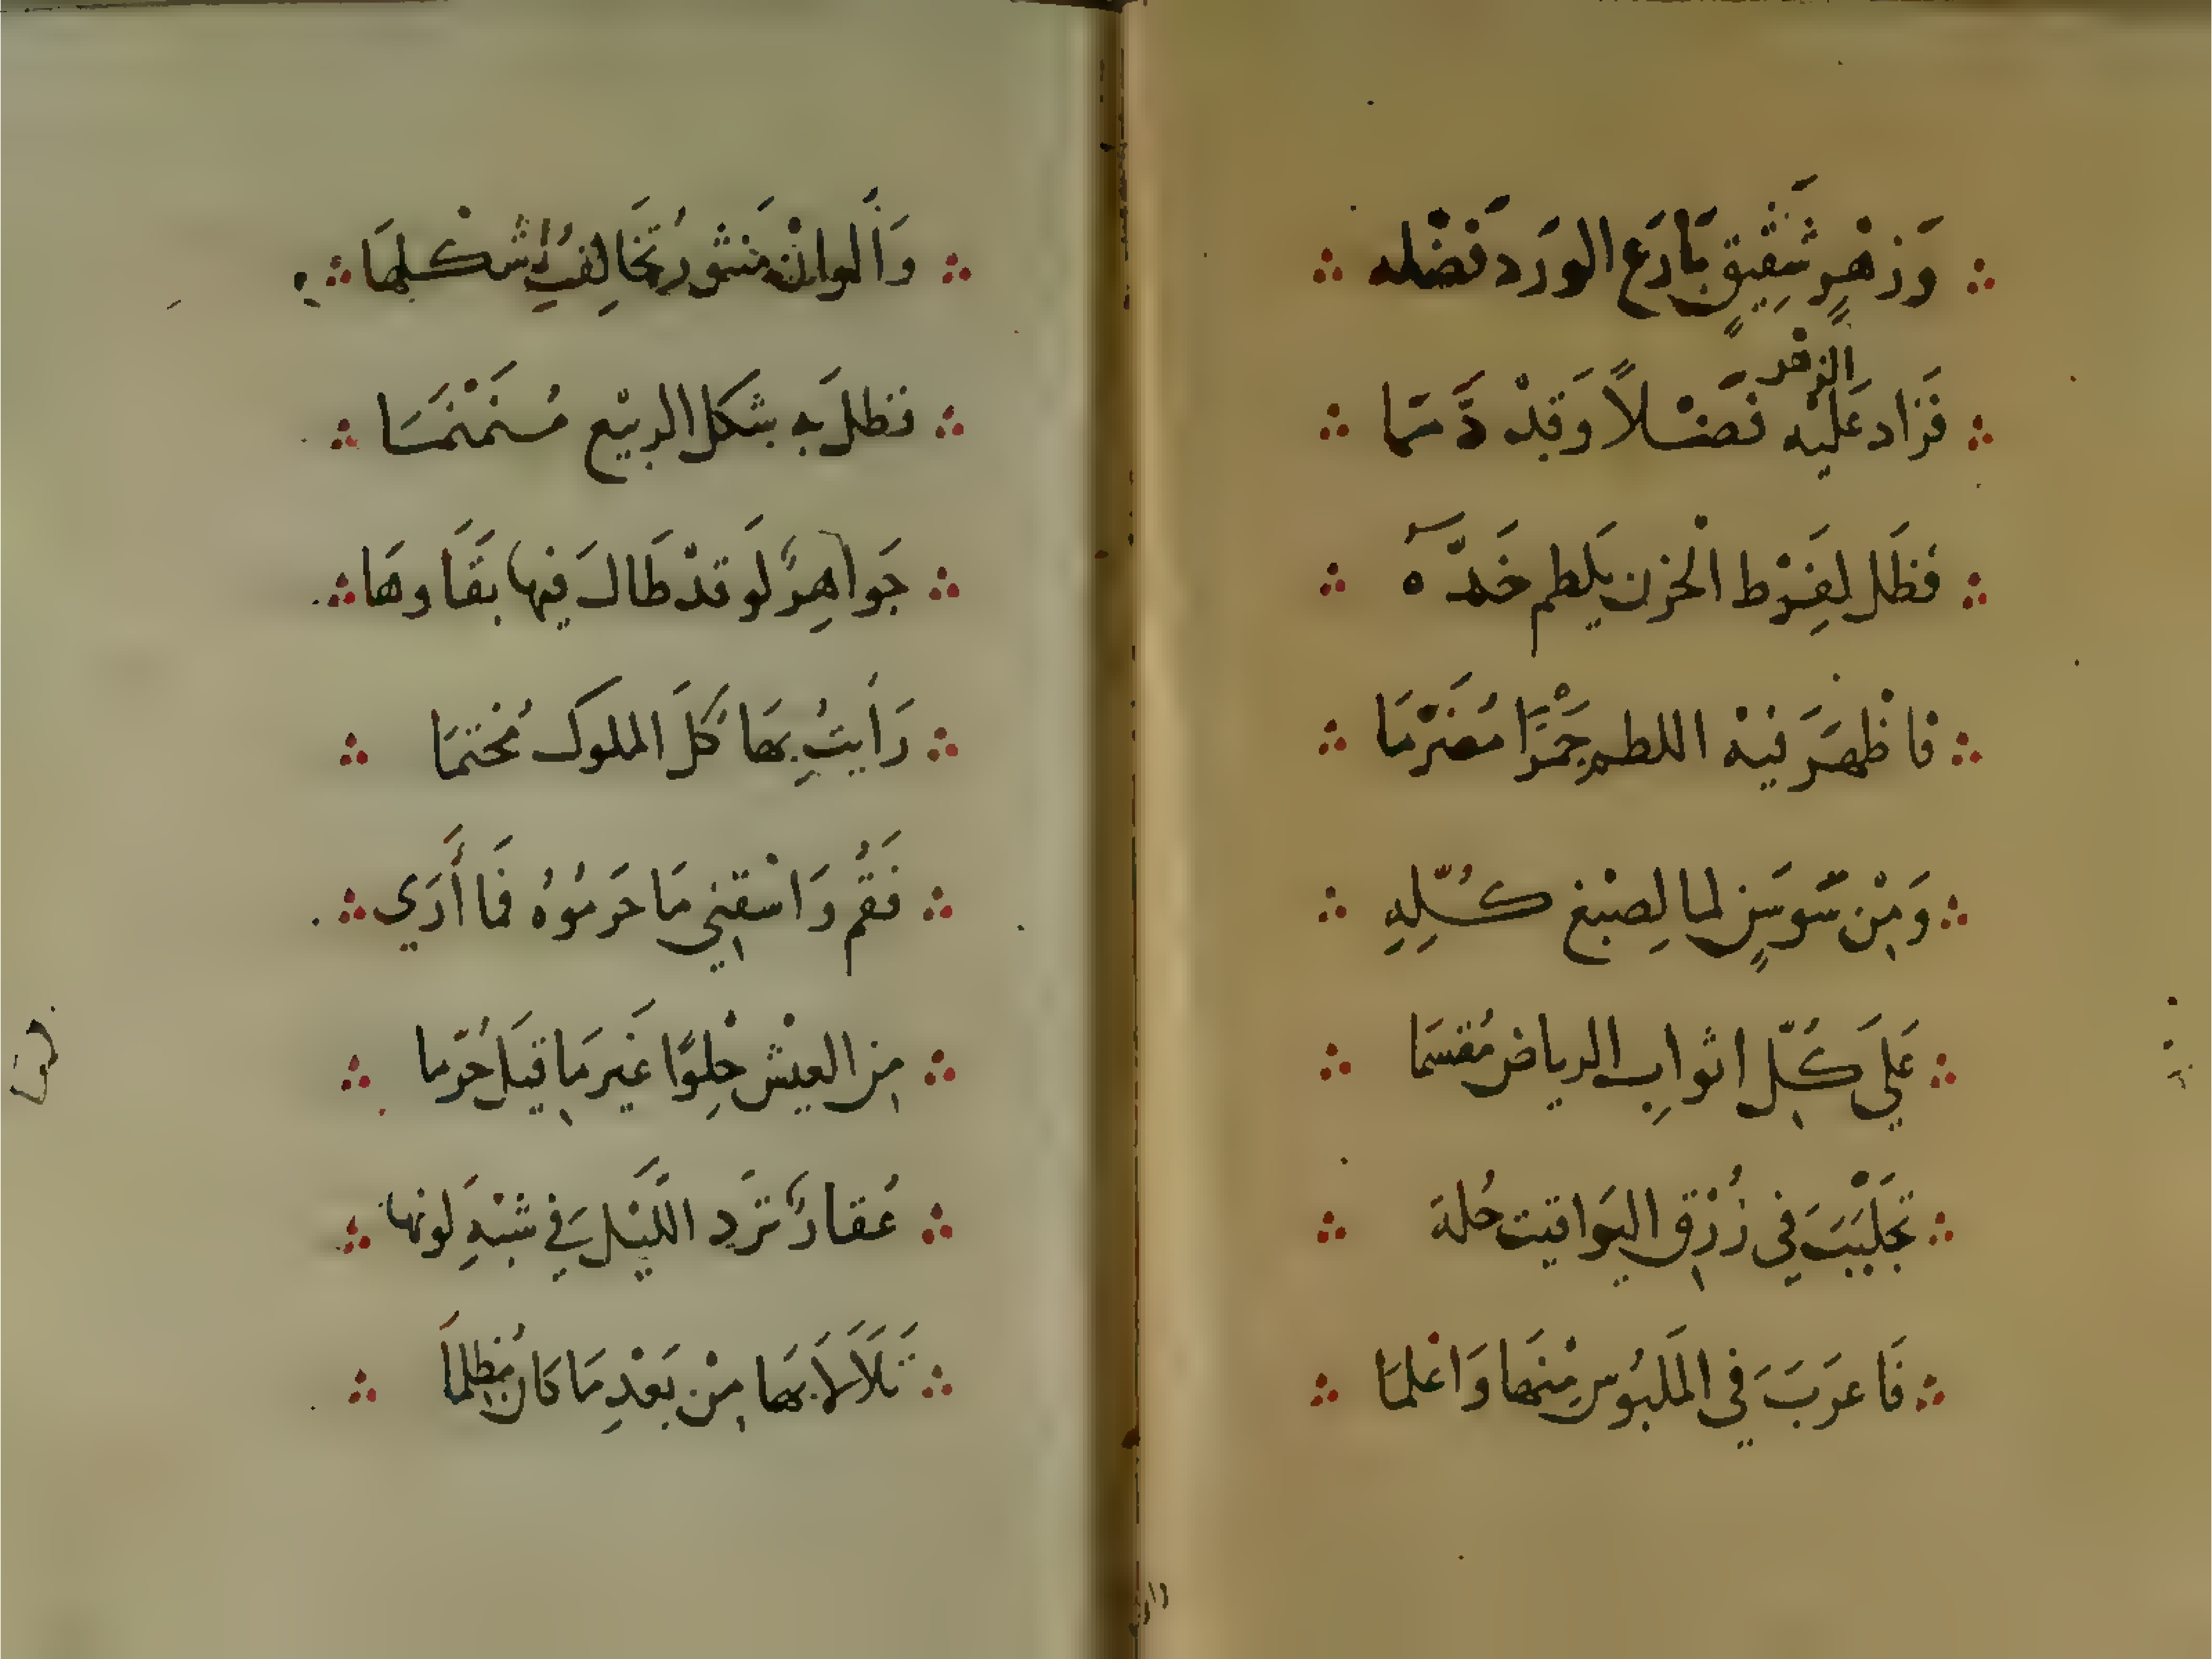 وَزَهْرِ شَقِيقٍ نَازَعَ الوَرَد فَضْله
الورد
فَزَاد عَلَيْه فَضْلاً وَقَدْ ذَمّمَا
فظَل لِفَرْط الْحُزن يَلطم خَدّه
فاظْهَرَ فيهْ اللطم جَمْرًا مُضَرّمَا
وَمِنْ سَوسَنٍ لما لِصبْغ كُلِّهِ
عَلَى كُلِّ اثوابِ الرياض مُقسمَا
تجَلبَبَ فِي زُرْقِ اليَواقيت حُلة
فَاعرَبَ في المَلبُوس مِنهَا وَاعْلمَا
وَأَلوانْ مَنثور تُخَالِفُ شكْلهَا
فظلَ به شكل الربيْع مُنمنمَا
جَواهِرُ لَو قدْ طَالَ فيها بقَاوهَا
رَأيتُ بِهَا كُلَ الملوكَ مُختمَا
فَقُم وَاسْقِني مَا حَرمُوهُ فَمَا أَرَي
مِن العيْش حْلوًا غَير مَا قيَل حُرّما
عُقارٌ تَرَد اللَّيْل في شبْهِ لَونها
تَلَألَأَ بهَا مِنْ بَعْدِ مَا كَان مُظلمَا